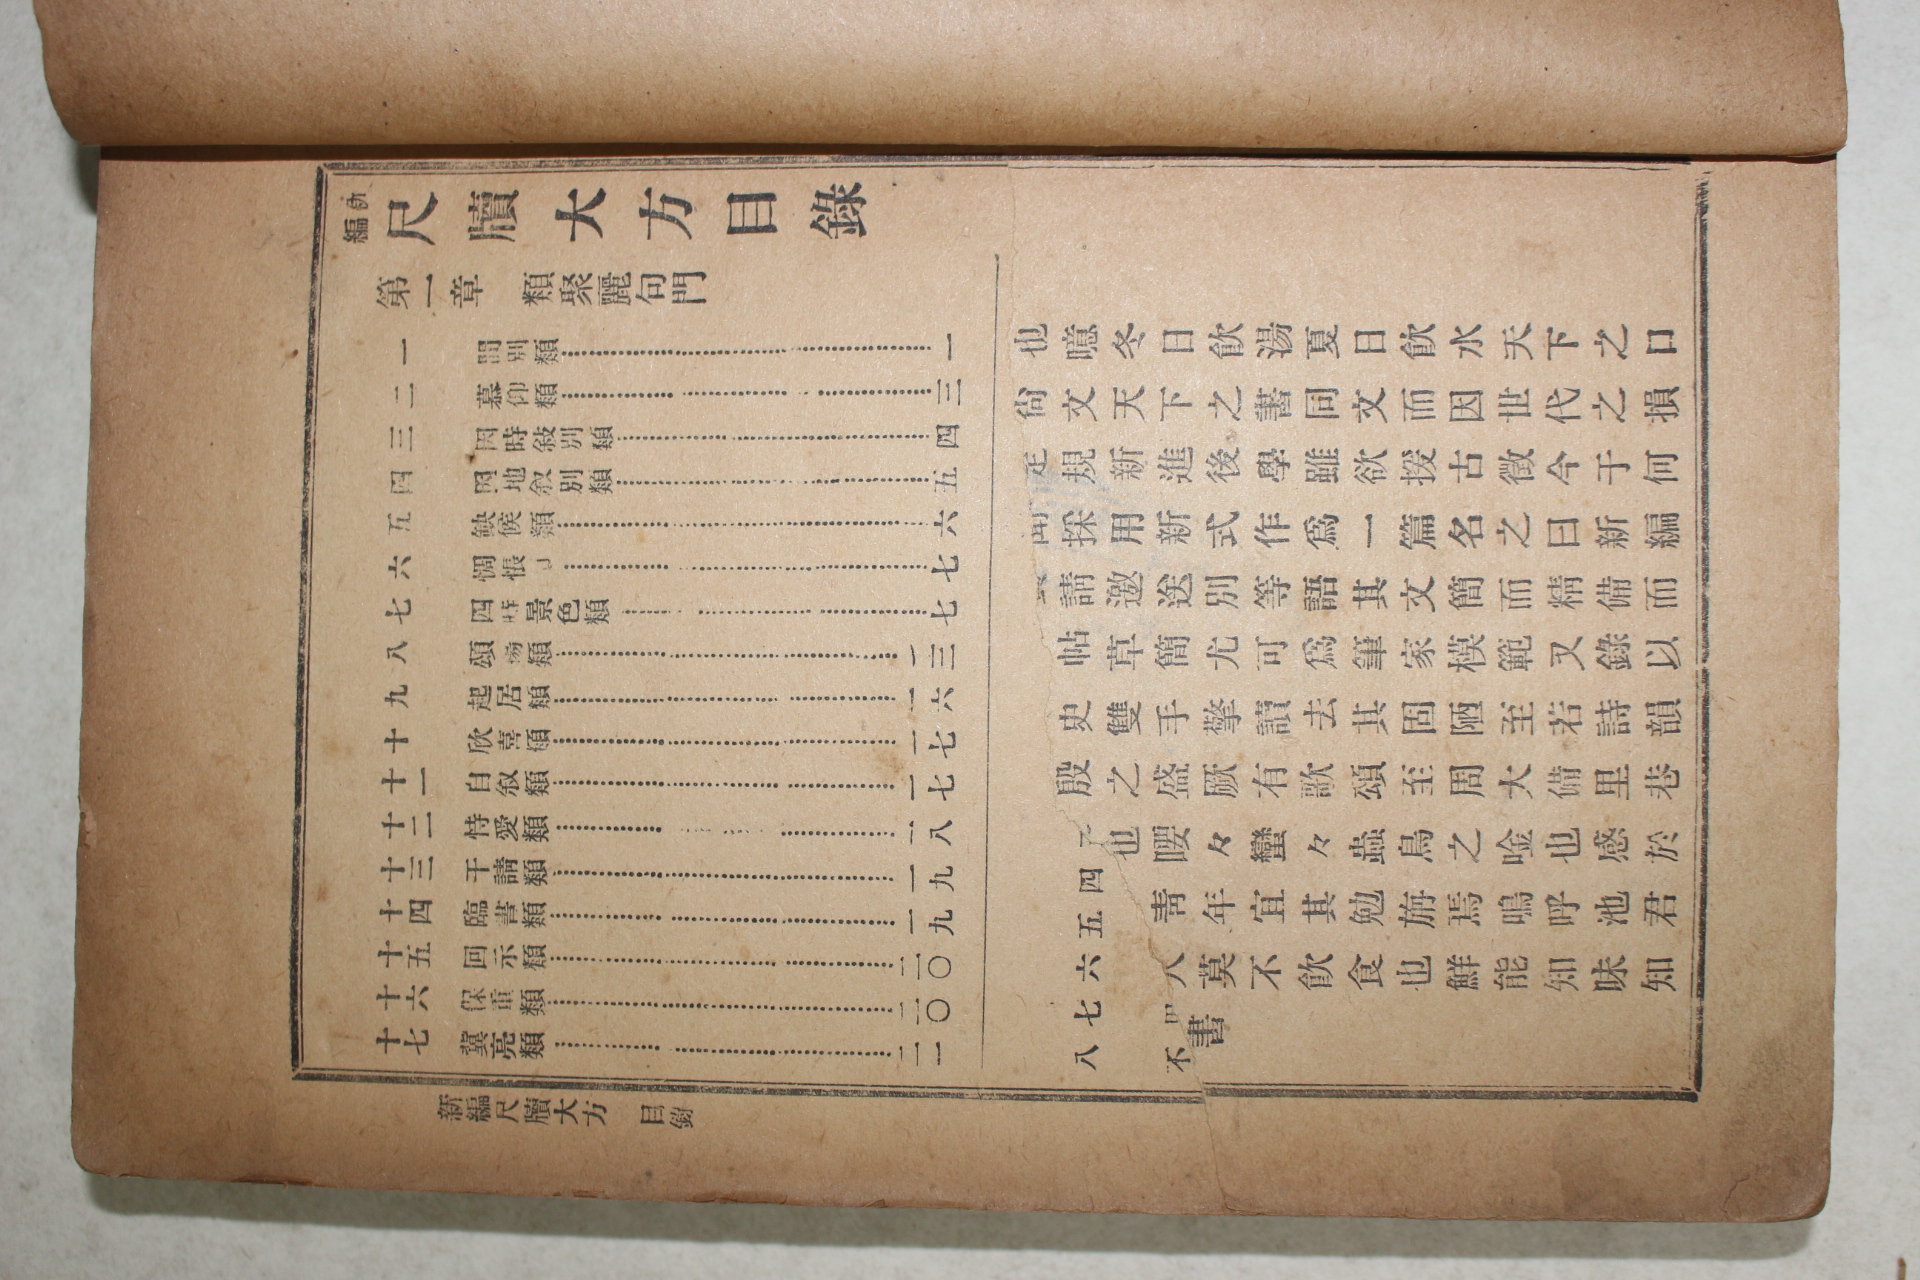 新編 尺牘大方目錄
第一章 類聚麗句門
一 間別類 一
二 慕仰類 三
三 因時敍別類 四
四 因地敘別類 五
五 缺候類 六
六 惆悵 七
七 四時景色類 七
八 頌揚類 一三
九 起居類 一六
十 欣喜類 一七
十一 自叙類 一七
十二 恃愛類 一八
十三 干請類 一九
十四 臨書類 一九
十五 回示類 二〇
十六 保重類 二〇
十七 冀亮類 二一
也噫冬日飮湯夏日飮水天下之口
尙文天下之書同文而因世代之損
定規新進後學雖欲援古徵今于何
聞採用新式作爲一篇名之曰新編
請邀送別等語其文簡而精備而
帖草簡尤可爲筆家模範又錄以
史雙手擎讀去其固陋至若詩韻
殷之盛厥有歌頌至周大備里巷
也嚶々蠻々蟲鳥之唫也感於
四 靑年宜其勉旃焉嗚呼池君
五
六 人莫不飮食也鮮能知味知
七 四
書
八 不
新編尺牘大方 目錄